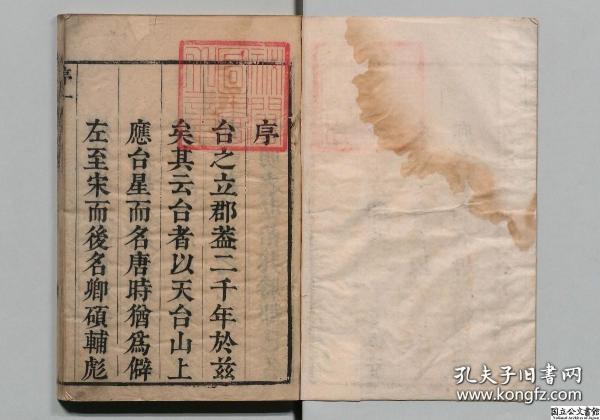 序
台之立郡葢二千年於兹
矣其云台者以天台山上
應台星而名唐時猶爲僻
左至宋而後名卿碩輔彪
序一
孔夫子旧书网
kongfz.com
国立公文書館
National Archives of Japan